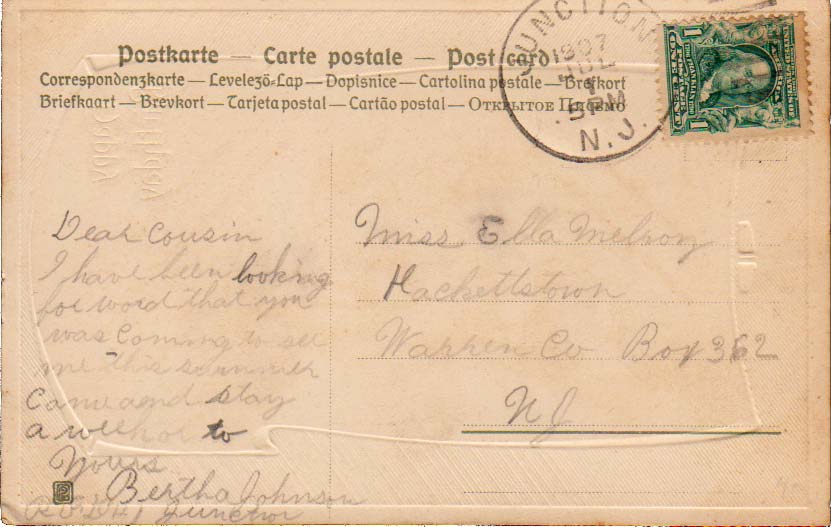 Postkarte — Carte postale — Post card
Correspondenzkarte — Levelező-Lap — Dopisnice — Cartolina postale — Brefkort
Briefkaart — Brevkort — Tarjeta postal — Cartão postal — Открытое Письмо
JUNCTION
1907
JUL
1
5 PM
N.J.
1
Dear Cousin
I have been looking
for word that you
was Coming to see
me this summer
Came and stay
a week or to
Yours
Bertha Johnson
Junction
Miss Ella Melroy
Hackettstown
Warren Co Box 362
NJ